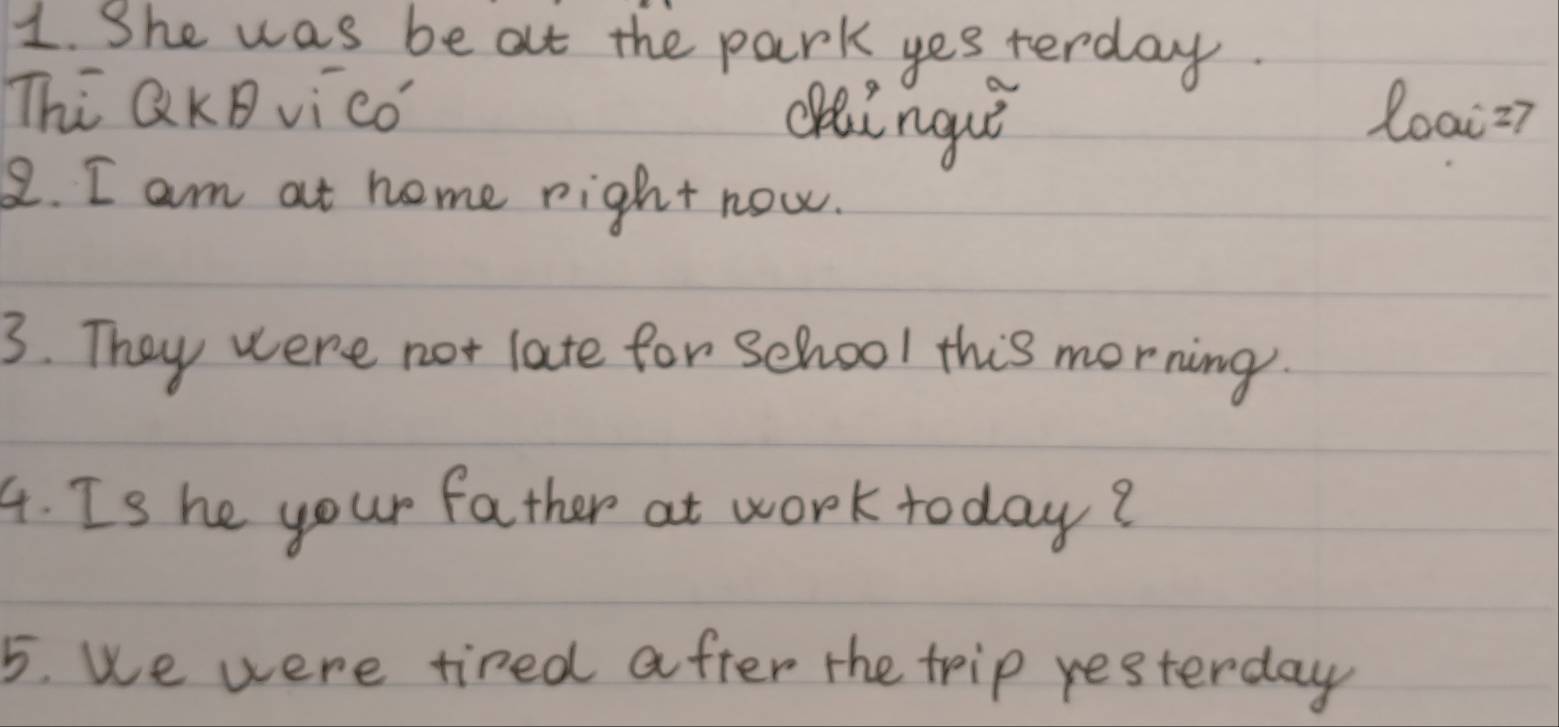 1. She was be at the park yesterday.
Thì QKĐ vì có chủ ngữ loại =>
2. I am at home right now.
3. They were not late for school this morning.
4. Is he your father at work today?
5. We were tired after the trip yesterday